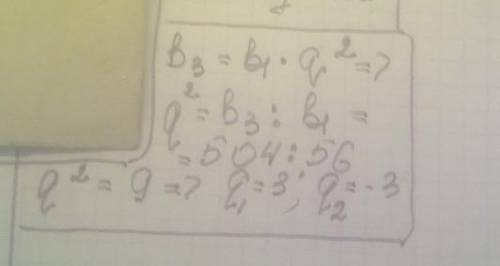 b₃ = b₁ · q² =>
q² = b₃ : b₁ =
= 504 : 56
q² = 9 => q₁ = 3; q₂ = -3